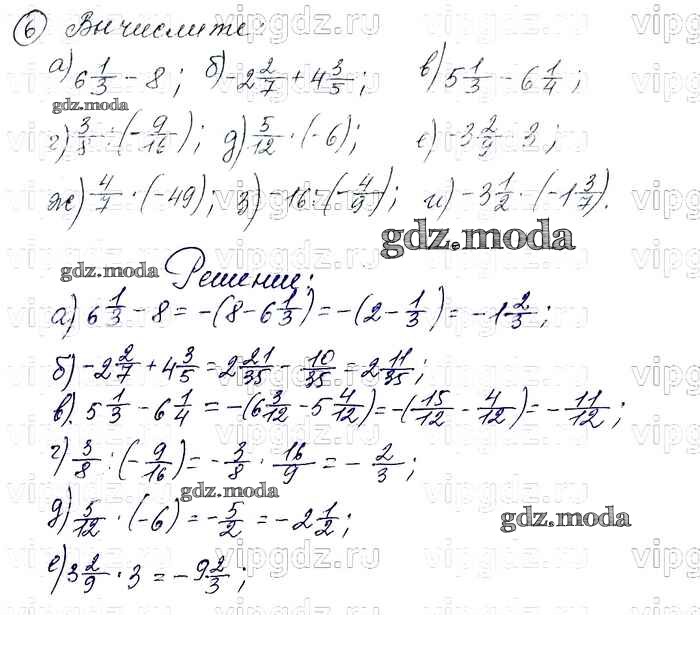 6 Вычислите:
а) 6 1/3 - 8; б) -2 2/7 + 4 3/5; в) 5 1/3 - 6 1/4;
gdz.moda
г) 3/8 : (-9/16); д) 5/12 · (-6); е) -3 2/9 · 3;
ж) 4/7 · (-49); з) -16 : (-4/9); и) -3 1/2 · (-1 3/7).
gdz.moda
gdz.moda Решение:
а) 6 1/3 - 8 = -(8 - 6 1/3) = -(2 - 1/3) = -1 2/3;
б) -2 2/7 + 4 3/5 = 2 21/35 - 10/35 = 2 11/35;
в). 5 1/3 - 6 1/4 = -(6 3/12 - 5 4/12) = -(15/12 - 4/12) = -11/12;
г) 3/8 : (-9/16) = -3/8 · 16/9 = -2/3;
gdz.moda
д) 5/12 · (-6) = -5/2 = -2 1/2;
gdz.moda
е) 3 2/9 · 3 = -9 2/3;
vipgdz.ru